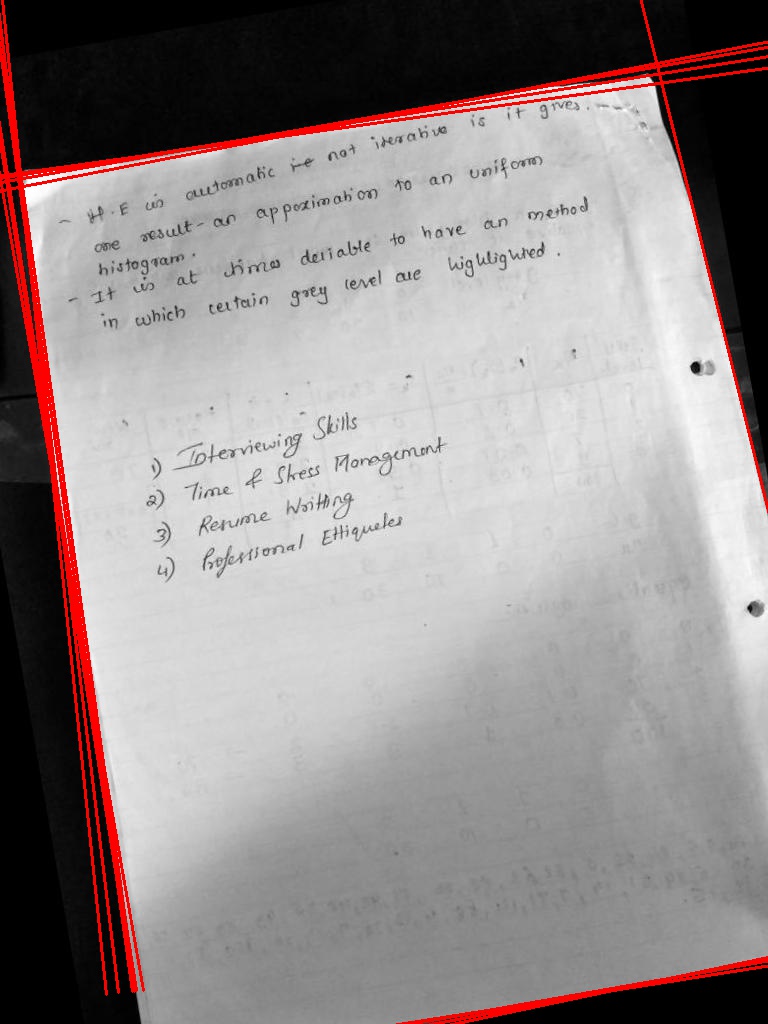 - H.E is automatic i.e not iterative is it gives.
one result - an appoximation to an uniform
histogram.
- It is at times deriable to have an method
in which certain grey level are highlighted.
1) Interviewing Skills
2) Time & Stress Management
3) Resume Writting
4) Professional Ettiquetes